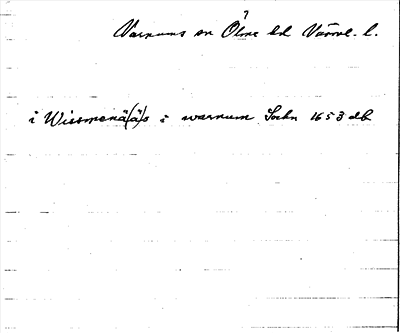 Varnums sn Ölme hd Värml. l.
i Wissmenä(ä)s i warnum Sochn 1653 db